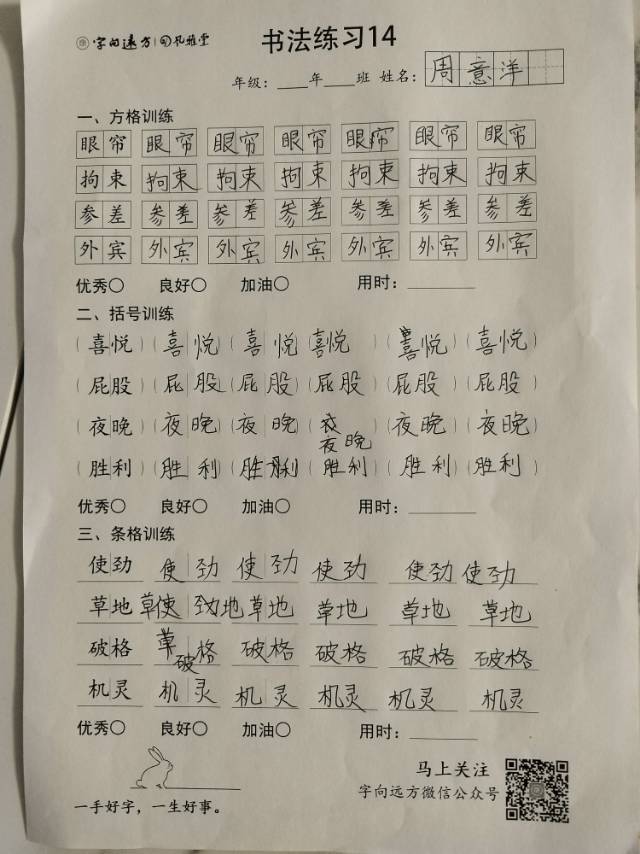 字向远方
书法练习14
年级：____年____班 姓名：周意洋
一、方格训练
眼帘 眼帘 眼帘 眼帘 眼帘 眼帘 眼帘
拘束 拘束 拘束 拘束 拘束 拘束 拘束
参差 参差 参差 参差 参差 参差 参差
外宾 外宾 外宾 外宾 外宾 外宾 外宾
优秀○ 良好○ 加油○ 用时：________
二、括号训练
（喜悦）（喜悦）（喜悦）（喜悦）（喜悦）（喜悦）
（屁股）（屁股）（屁股）（屁股）（屁股）（屁股）
（夜晚）（夜晚）（夜晚）（夜晚）（夜晚）（夜晚）
（胜利）（胜利）（胜利）（胜利）（胜利）（胜利）
优秀○ 良好○ 加油○ 用时：________
三、条格训练
使劲 使劲 使劲 使劲 使劲 使劲
草地 草使 劲地 草地 草地 草地 草地
破格 草破格 破格 破格 破格 破格
机灵 机灵 机灵 机灵 机灵 机灵
优秀○ 良好○ 加油○ 用时：________
马上关注
字向远方微信公众号
一手好字，一生好事。